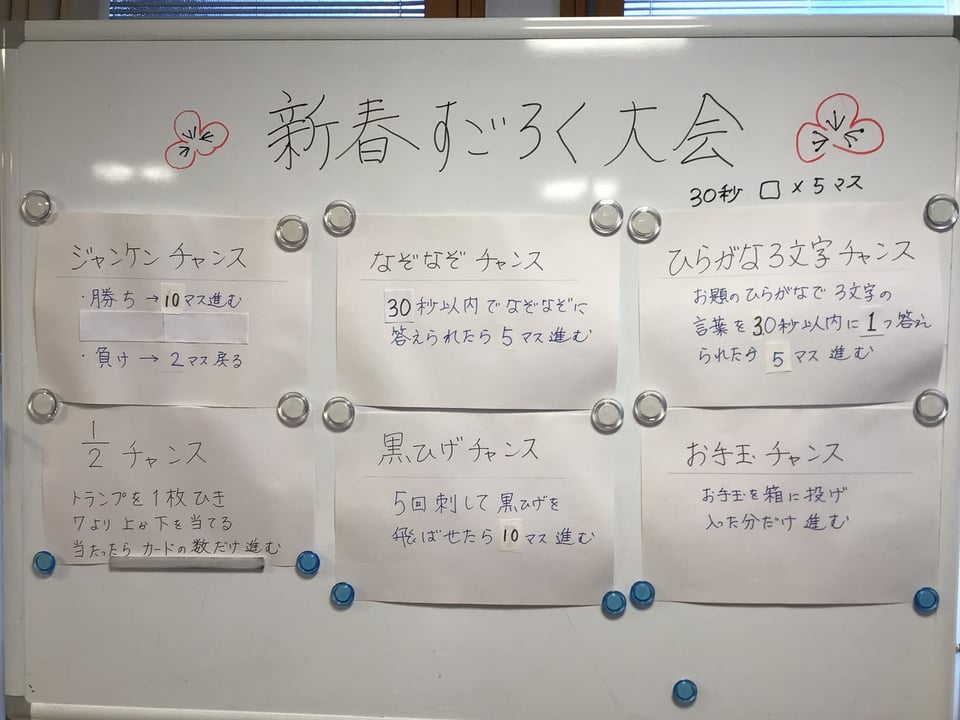 新春すごろく大会
30秒 □ × 5マス
ジャンケン チャンス
・勝ち → 10マス進む
・負け → 2マス戻る
なぞなぞ チャンス
30秒以内でなぞなぞに
答えられたら 5マス進む
ひらがな3文字チャンス
お題のひらがなで 3文字の
言葉を30秒以内に1つ答え
られたら 5マス進む
1/2 チャンス
トランプを1枚ひき
7より上か下を当てる
当たったら カードの数だけ進む
黒ひげチャンス
5回刺して黒ひげを
飛ばせたら 10マス進む
お手玉 チャンス
お手玉を箱に投げ
入った分だけ進む